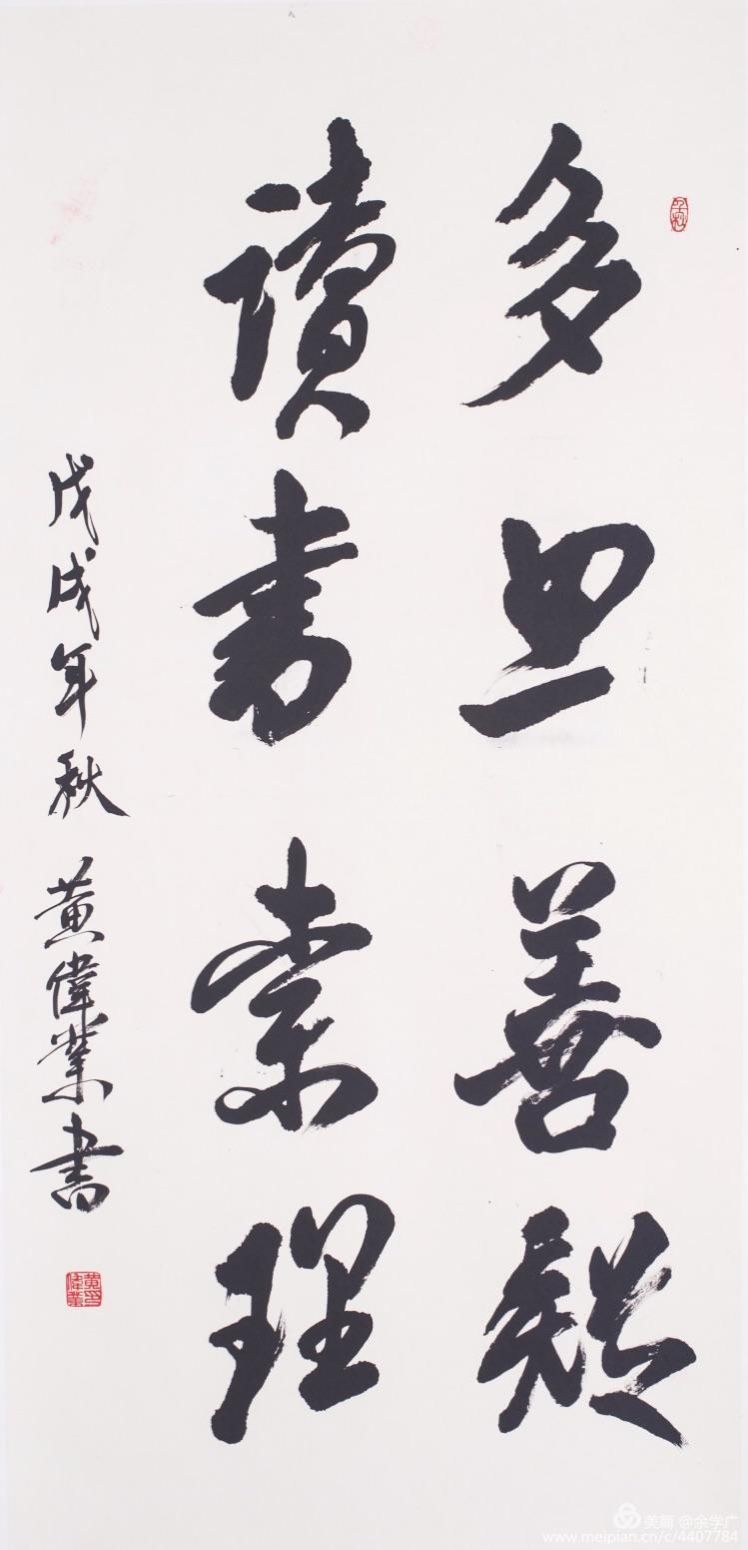 多思善疑
讀書索理
戊戌年秋 黄偉業書
黄印偉業
美篇 @余学广
www.meipian.cn/c/4407784